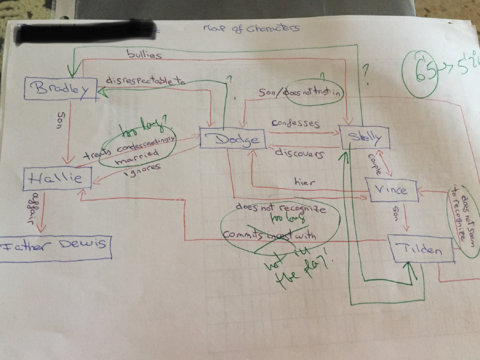 Map of Characters
65 → 5'2
bullies
?
?
Bradley
disrespectable to
?
son/does not trust in
Son
too long?
Dodge
condesses
Shelly
treats condescendingly
married
discovers
ignores
couple
Hallie
hier
Vince
does not seem
to recognize
affair
does not recognize
too long
son
commits incest with
Father Dewis
not in
the play!
Tilden